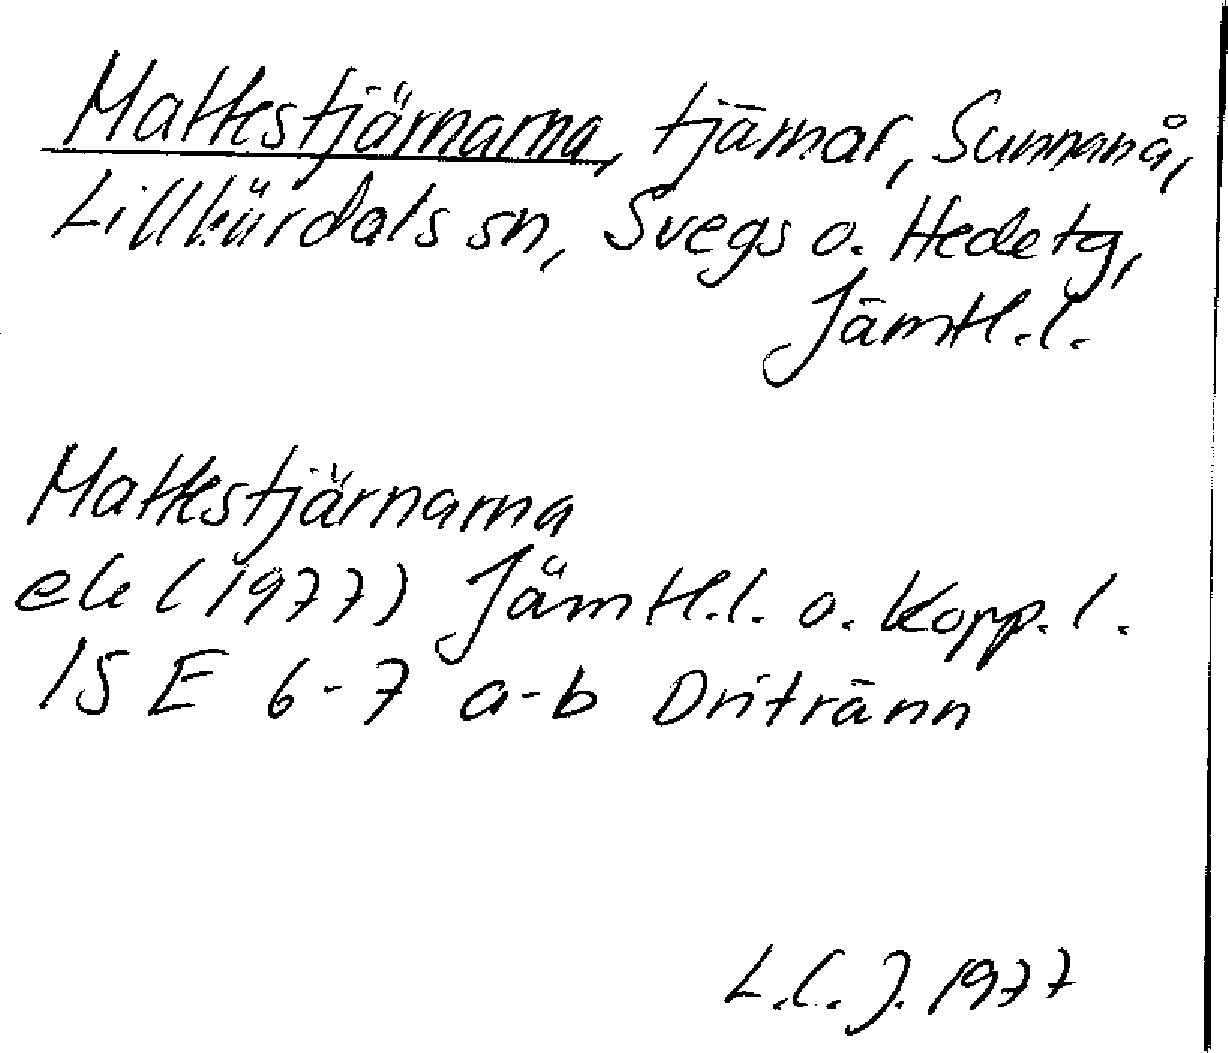 Mattestjärnarna, tjärnar, Sunnanå,
Lillhärdals sn, Svegs o. Hede tg,
Jämtl.l.
Mattestjärnarna
ek (1977) Jämtl.l. o. Kopp.l.
15 E 6-7 a-b Dritränn
L.C.J. 1977